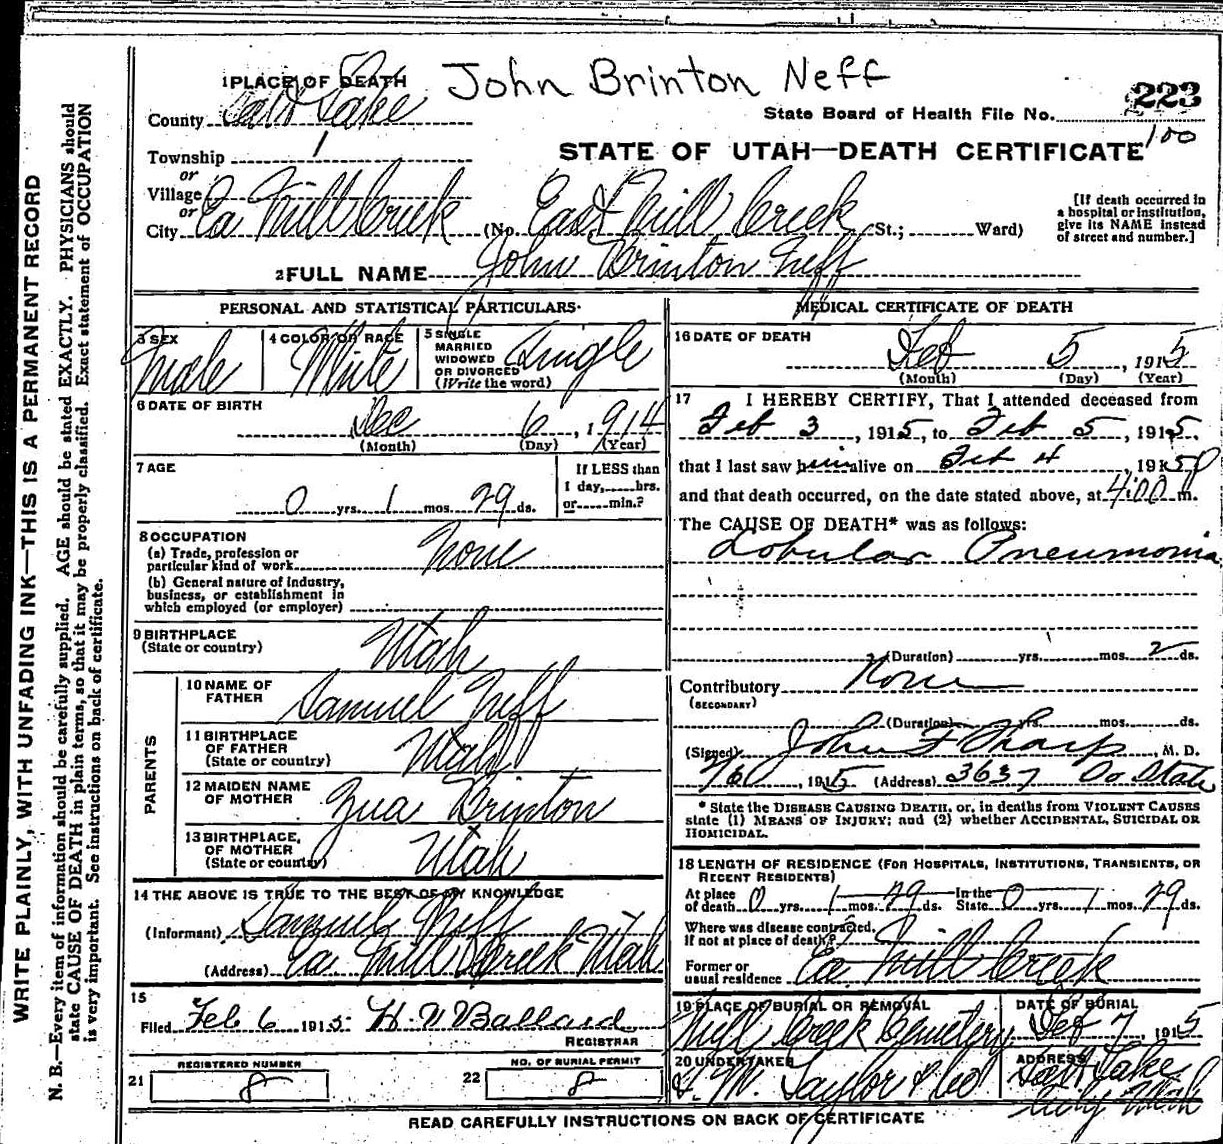 John Brinton Neff
1 PLACE OF DEATH
County Salt Lake
State Board of Health File No. 223
100
Township 1
STATE OF UTAH—DEATH CERTIFICATE
or
Village
or
City Ea Mill Creek (No. East Mill Creek St.; Ward)
[If death occurred in
a hospital or institution,
give its NAME instead
of street and number.]
2 FULL NAME John Brinton Neff
PERSONAL AND STATISTICAL PARTICULARS
3 SEX Male
4 COLOR OR RACE White
5 SINGLE
MARRIED
WIDOWED
OR DIVORCED
(Write the word) Single
6 DATE OF BIRTH
Dec 6, 1914
(Month) (Day) (Year)
7 AGE
0 yrs. 1 mos. 29 ds.
If LESS than
1 day, hrs.
or min.?
8 OCCUPATION
(a) Trade, profession or
particular kind of work None
(b) General nature of industry,
business, or establishment in
which employed (or employer)
9 BIRTHPLACE
(State or country) Utah
PARENTS
10 NAME OF
FATHER Samuel Neff
11 BIRTHPLACE
OF FATHER
(State or country) Utah
12 MAIDEN NAME
OF MOTHER Zua Brinton
13 BIRTHPLACE,
OF MOTHER
(State or country) Utah
14 THE ABOVE IS TRUE TO THE BEST OF MY KNOWLEDGE
(Informant) Samuel Neff
(Address) Ea Mill Creek Utah
15
Filed Feb 6 1915 H. V Ballard
REGISTRAR
REGISTERED NUMBER
21 8
NO. OF BURIAL PERMIT
22 8
MEDICAL CERTIFICATE OF DEATH
16 DATE OF DEATH
Feb 5, 1915
(Month) (Day) (Year)
17 I HEREBY CERTIFY, That I attended deceased from
Feb 3, 1915, to Feb 5, 1915,
that I last saw him alive on Feb 4, 1915
and that death occurred, on the date stated above, at 4:00 m.
The CAUSE OF DEATH* was as follows:
Lobular Pneumonia
(Duration) yrs. mos. 2 ds.
Contributory None
(SECONDARY)
(Duration) yrs. mos. ds.
(Signed) John F Sharp, M. D.
1915 (Address) 3637 So State
* State the DISEASE CAUSING DEATH, or, in deaths from VIOLENT CAUSES
state (1) MEANS OF INJURY; and (2) whether ACCIDENTAL, SUICIDAL OR
HOMICIDAL.
18 LENGTH OF RESIDENCE (FOR HOSPITALS, INSTITUTIONS, TRANSIENTS, OR
RECENT RESIDENTS)
At place
of death 0 yrs. 1 mos. 29 ds. In the
State 0 yrs. 1 mos. 29 ds.
Where was disease contracted,
If not at place of death?
Former or
usual residence Ea Mill Creek
19 PLACE OF BURIAL OR REMOVAL
Mill Creek Cemetery
DATE OF BURIAL
Feb 7 1915
20 UNDERTAKER
S. M. Taylor & Co
ADDRESS
Salt Lake
City Utah
READ CAREFULLY INSTRUCTIONS ON BACK OF CERTIFICATE
WRITE PLAINLY, WITH UNFADING INK—THIS IS A PERMANENT RECORD
N. B.—Every item of information should be carefully supplied. AGE should be stated EXACTLY. PHYSICIANS should
state CAUSE OF DEATH in plain terms, so that it may be properly classified. Exact statement of OCCUPATION
is very important. See instructions on back of certificate.